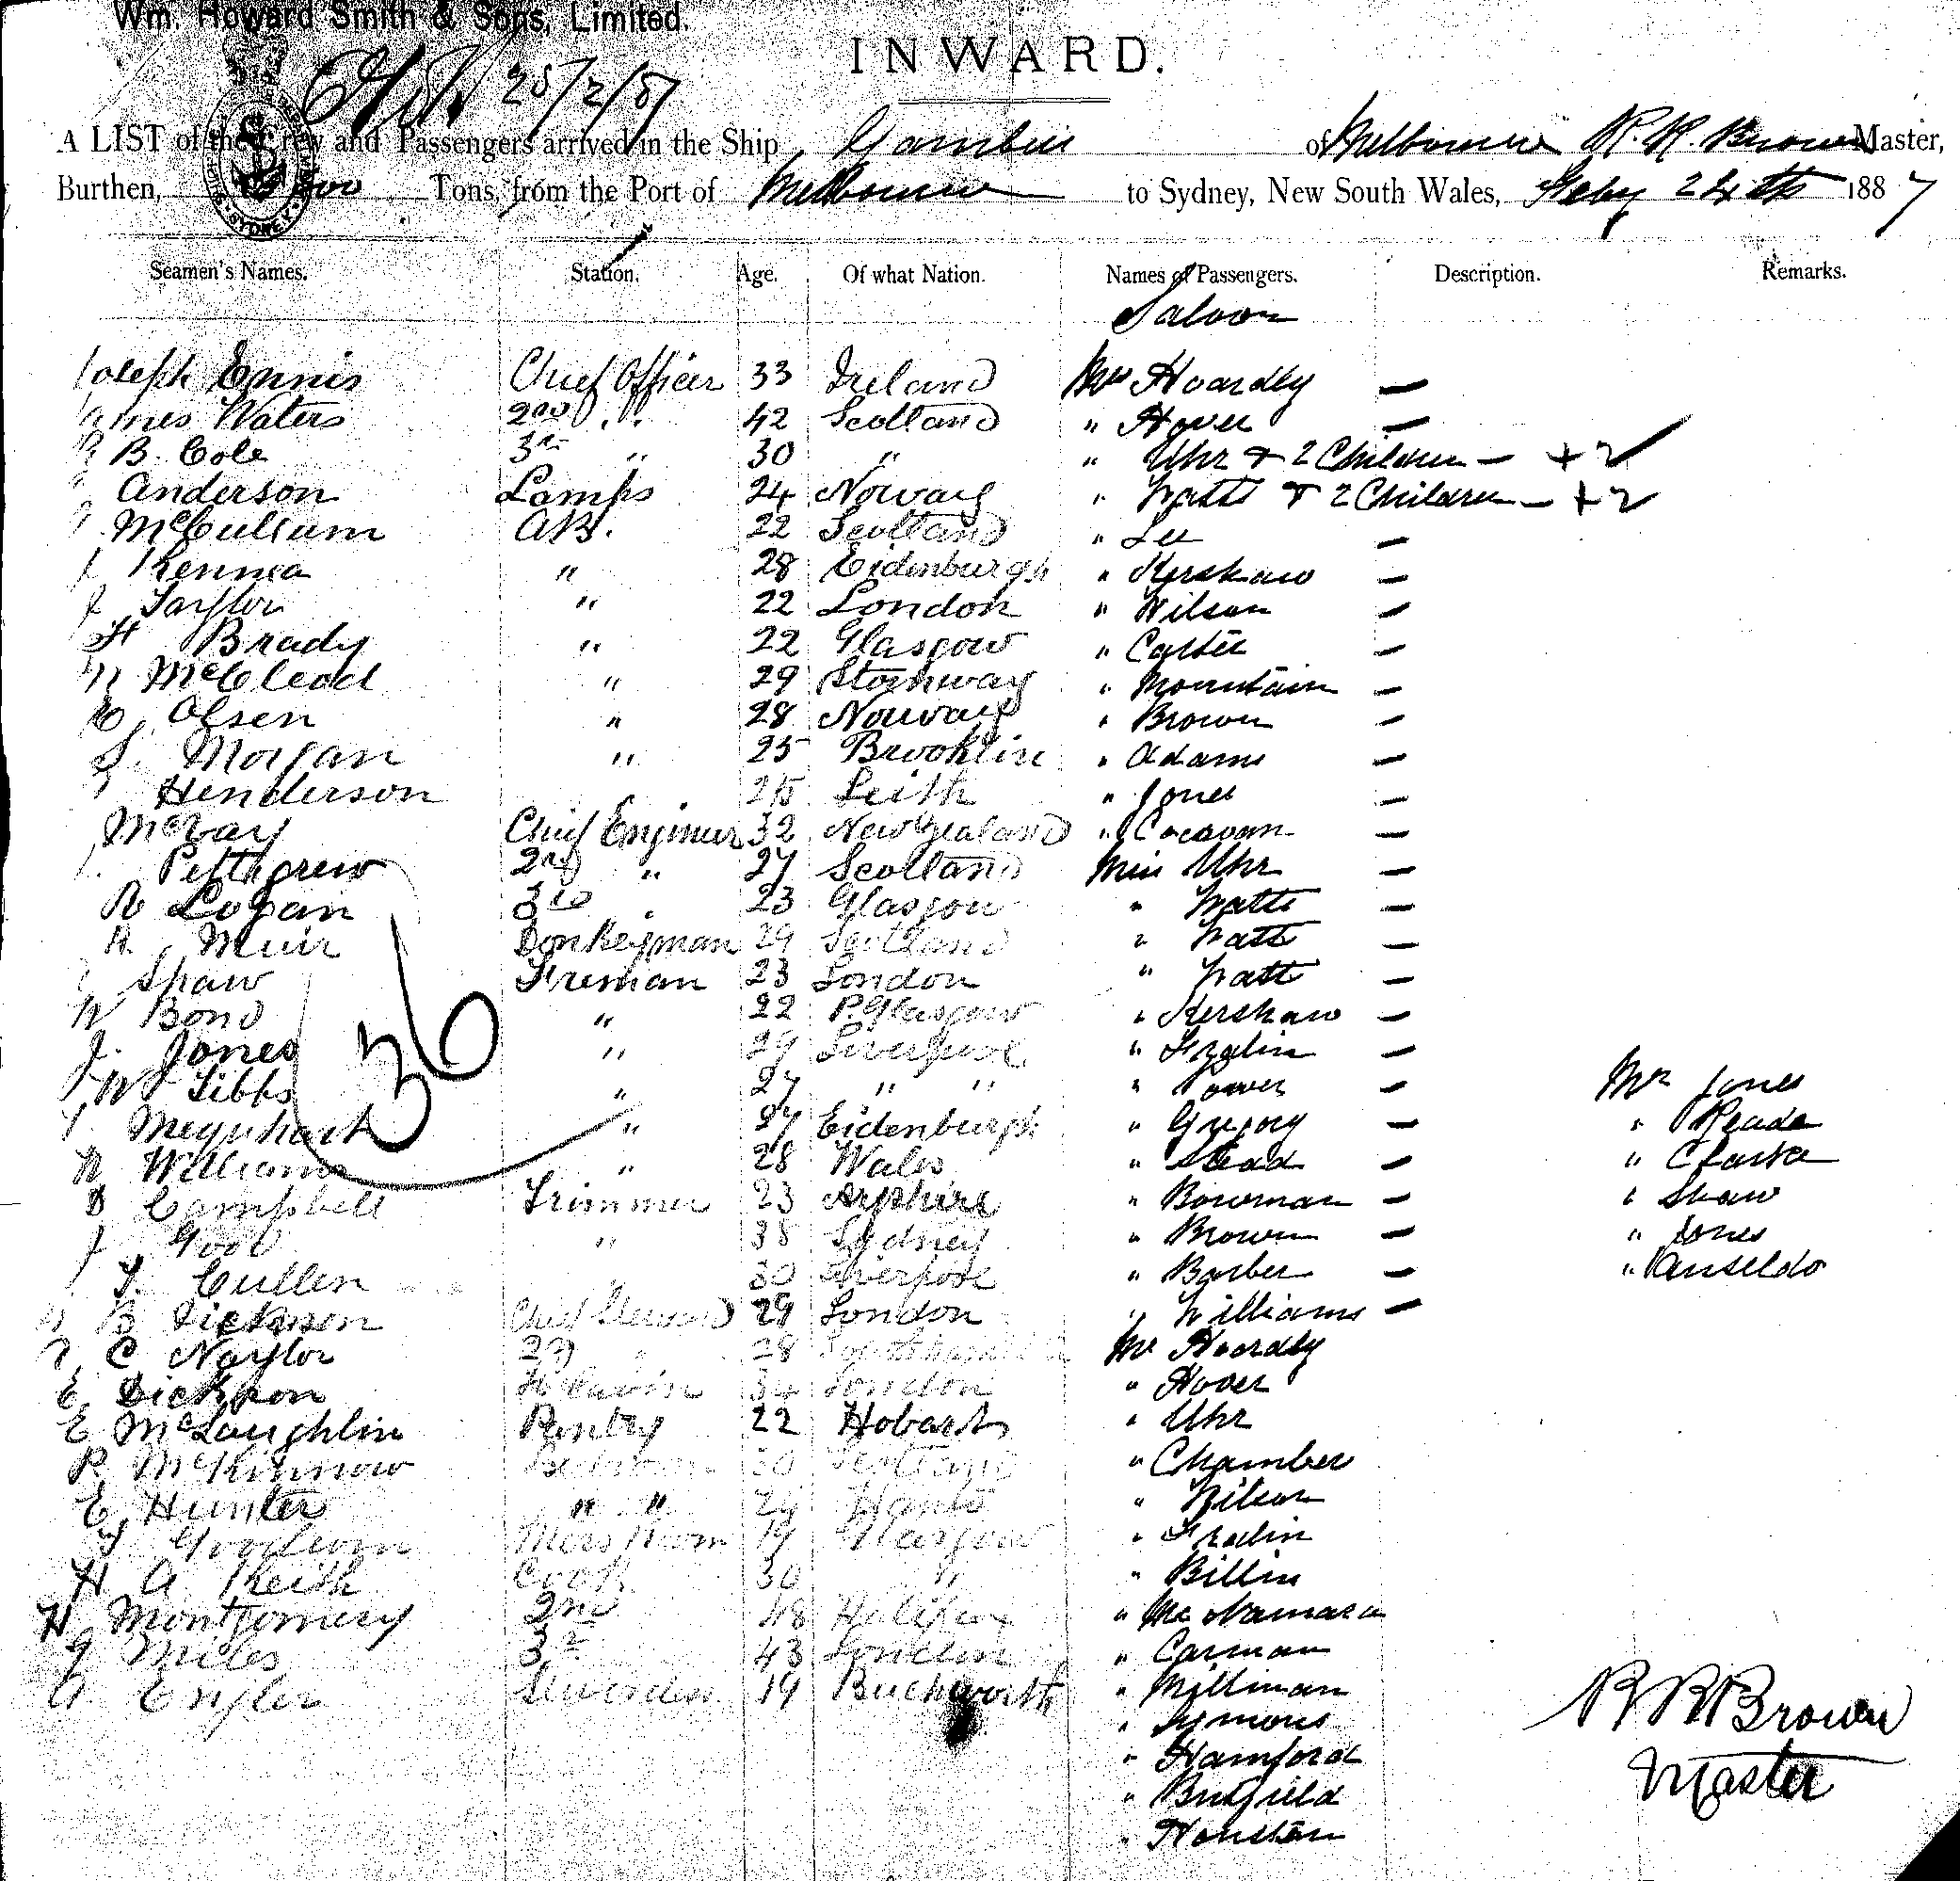 Wm. Howard Smith & Sons, Limited.
INWARD.
25/2/87
A LIST of the Crew and Passengers arrived in the Ship Gambier of Melbourne R. R. Brown Master,
Burthen, Tons, from the Port of Melbourne to Sydney, New South Wales, Feby 24th 1887
Seamen's Names. Station. Age. Of what Nation. Names of Passengers. Description. Remarks.
Saloon
Joseph Ennis Chief Officer 33 Ireland Mrs Hoardly —
James Waters 2nd " " 42 Scotland " Hover —
B. Cole 3rd " 30 " " Uhr & 2 Children — + 2
Anderson Lamps 24 Noway " Watts & 2 Children — + 2
McCullum AB. 22 Scotland " Lee —
Kennea " 28 Eidenburgh " Kershaw —
J Taylor " 22 London " Wilson —
H Brady " 22 Glasgow " Carter —
N McCleod " 29 Stornway " Mountain —
C. Olsen " 28 Noway " Brown —
S. Morgan " 25 Brooklin " Adams —
Henderson " 25 Leith " Jones —
McVay Chief Engineer 32 New Zealand " Corcoran —
Pettigrew 2nd " 27 Scotland Miss Uhr —
R Logan 3rd " 23 Glasgow " Watts —
R. Muir Donkeyman 29 Scotland " Watt —
Shaw Fireman 23 London " Watt —
W Bond " 22 P. Glasgow " Kershaw —
J. Jones " 29 Liverpool " —
W Tibbs " 27 " " " Power — Mr Jones
Meynhart " 27 Eidenburgh " Gregory — " Reade
W Williams " 28 Wales " Stead — " Clarke
D Campbell Trimmer 23 Ayshire " Bowman — " Shaw
J Good " 38 Sydney " Brown — " Jones
T. Cullen " 30 Liverpool " Barber — " Anseldo
B Dickson Chief Steward 29 London " Williams —
C Naylor 2nd 28 Mr Hoardly
E Dickson F Cabin 34 London " Hover
E McLaughlin Pantry 22 Hobart " Uhr
R McKinnow Bedroom 30 Scotland " Chamber
E Hunter " " Hants " Wilson
Mess Room 19 Glasgow "
H A Keith Cook 30 " " Billin
H Montgomery 2nd 48 Halifax " McNamara
G Miles 3rd 43 London " Carman
A Engler 19 Buchworth " Milliman
" Symons
" Hamford
" Butfield
" Houston
36
R R Brown
Master